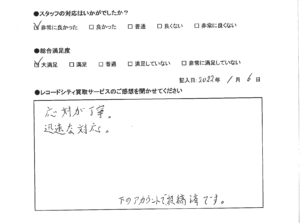 ●スタッフの対応はいかがでしたか?
☑非常に良かった □良かった □普通 □良くない □非常に良くない
●総合満足度
☑大満足 □満足 □普通 □満足していない □非常に満足していない
記入日:2022年 1月 6日
●レコードシティ買取サービスのご感想を聞かせてください
応対が丁寧。
迅速な対応。
下のアカウントで投稿済です。